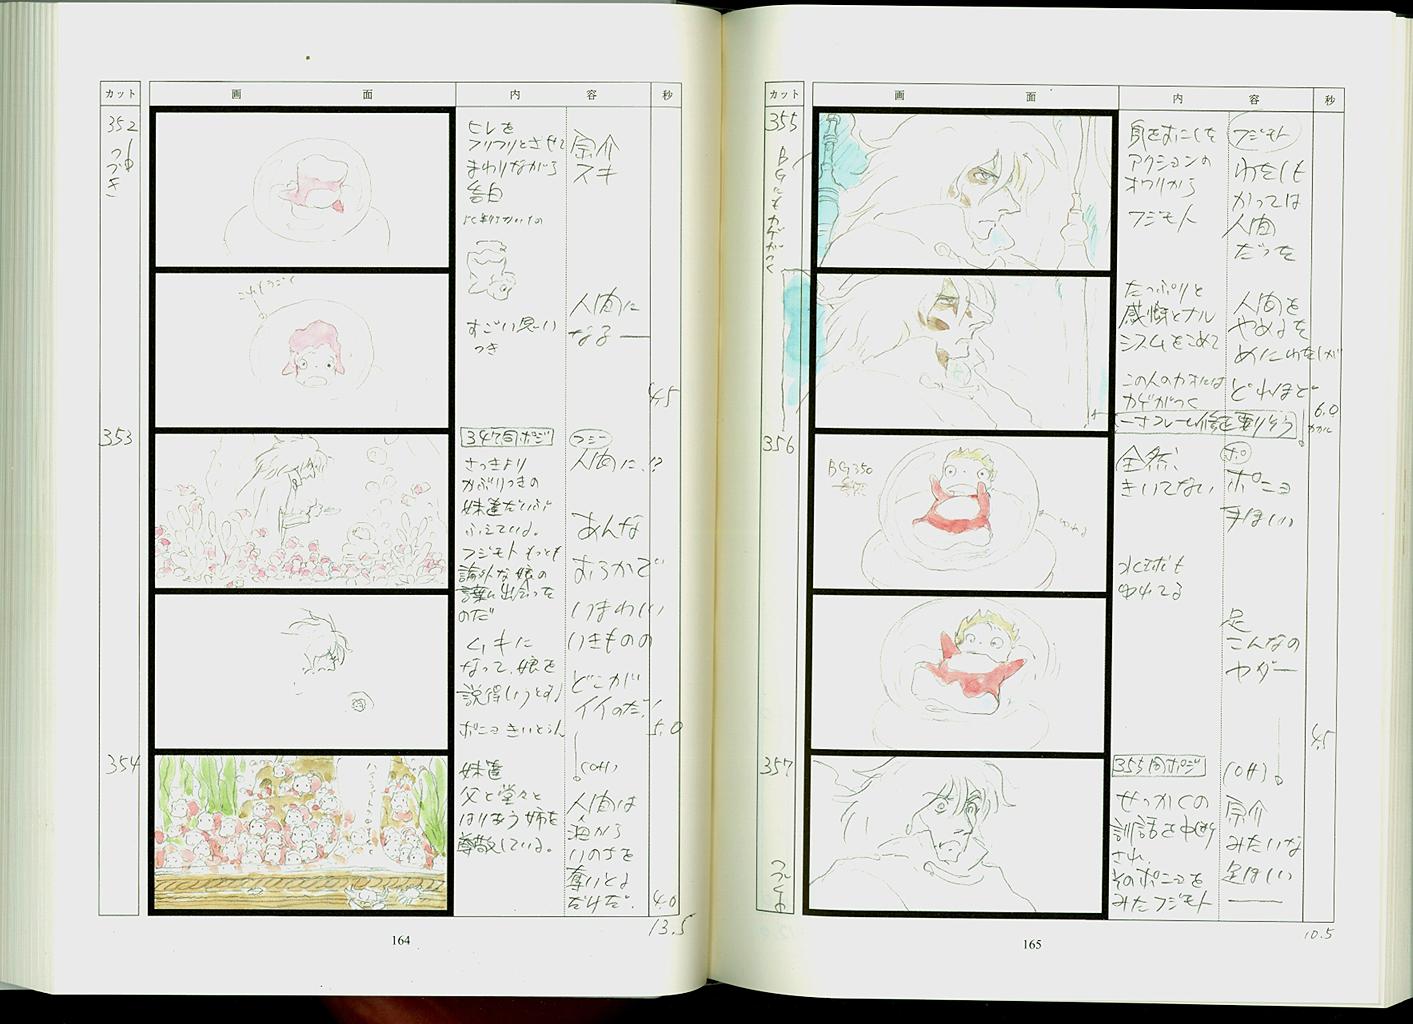 カット
画 面
内 容
秒
352
つづき
ヒレを
フリフリとさせて
まわりながら
告白
宗介
スキ
すごい思い
つき
人間に
なるー
4.5
353
347同ポジ
さっきより
かぶりつきの
妹達だいぶ
ふえている。
フジモト もっとも
論外な娘の
言葉に出会った
のだ
ムキに
なって、娘を
説得しようとする
ポニョ きいとらん
フジ
人間に!?
あんな
おろかで
いまわしい
いきものの
どこが
イイのだ!
5.0
354
妹達
父と堂々と
はりあう姉を
尊敬している。
(Off)
人間は
海から
いのちを
奪いとる
だけだ.
4.0
13.5
164
カット
画 面
内 容
秒
355
BGにもカゲがつく
身をおこした
アクションの
オワリから
フジモト
フジモト
わたしも
かつては
人間
だった
たっぷりと
感慨とナル
シズムをこめて
この人のカオには
カゲがつく
人間を
やめるた
めにわたしが
どれほど
6.0
356
BG350
全然、
きいてない
ポ
ポニョ
手ほしい
水球も
ゆれてる
足
こんなの
ヤダー
4.5
357
355同ポジ
せっかくの
訓話を中断
され、
そのポニョを
みたフジモト
(Off)
宗介
みたいな
足ほしい
ー
つづく
10.5
165